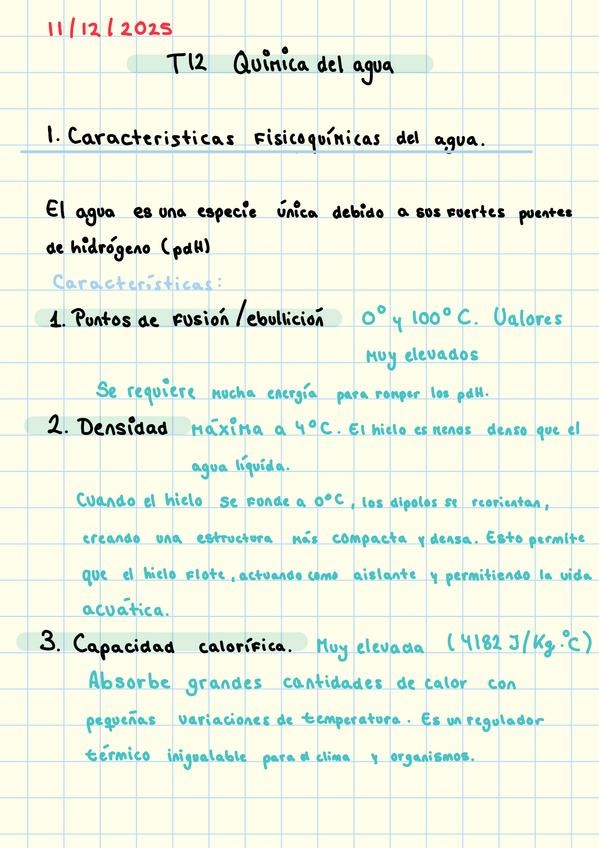 11/12/2025
T12 Quimica del agua
1. Caracteristicas Fisicoquímicas del agua.
El agua es una especie única debido a sus fuertes puentes
de hidrógeno (pdH)
Características:
1. Puntos de fusión/ebullición 0° y 100°C. Valores
muy elevados
Se requiere mucha energía para romper los pdH.
2. Densidad máxima a 4°C. El hielo es menos denso que el
agua líquida.
Cuando el hielo se funde a 0°C, los dipolos se reorientan,
creando una estructura más compacta y densa. Esto permite
que el hielo flote, actuando como aislante y permitiendo la vida
acuática.
3. Capacidad calorífica. Muy elevada (4182 J/Kg·°C)
Absorbe grandes cantidades de calor con
pequeñas variaciones de temperatura. Es un regulador
térmico inigualable para el clima y organismos.